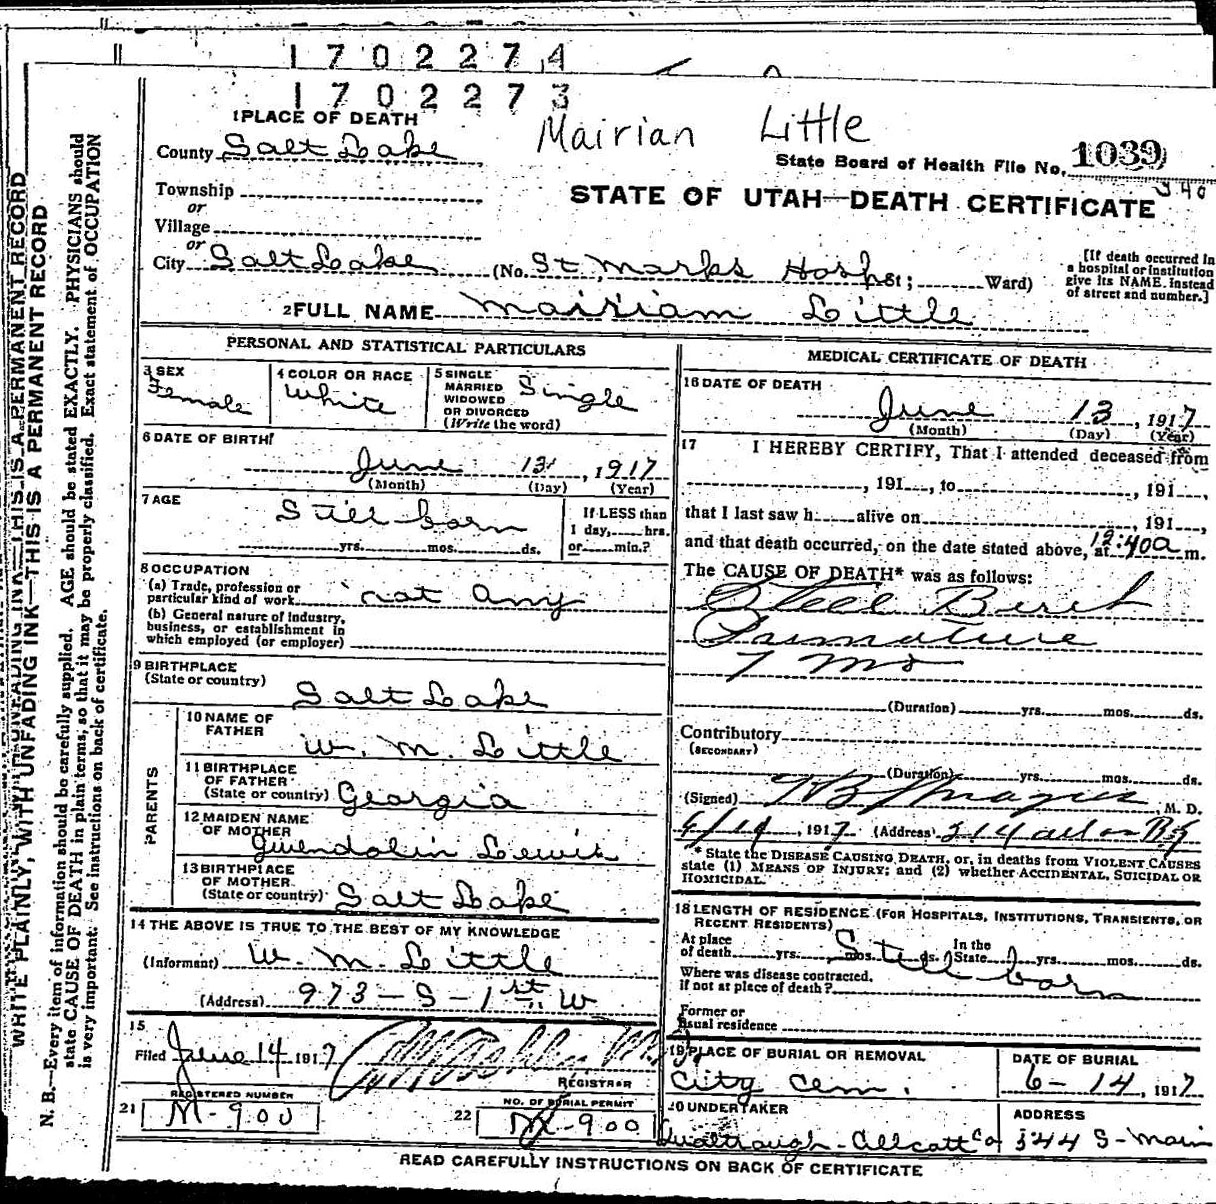 1702274
1702273
Mairian Little
1 PLACE OF DEATH
County Salt Lake
State Board of Health File No. 1039
340
Township
or
Village
or
STATE OF UTAH—DEATH CERTIFICATE
City Salt Lake (No. St. Marks Hosp St; Ward)
[If death occurred in a hospital or institution give its NAME instead of street and number.]
2 FULL NAME Mairiam Little
PERSONAL AND STATISTICAL PARTICULARS
3 SEX
Female
4 COLOR OR RACE
White
5 SINGLE MARRIED WIDOWED OR DIVORCED (Write the word)
Single
6 DATE OF BIRTH
June 13, 1917
(Month) (Day) (Year)
7 AGE
Still born
yrs. mos. ds.
If LESS than 1 day, hrs. or min.?
8 OCCUPATION
(a) Trade, profession or particular kind of work not any
(b) General nature of industry, business, or establishment in which employed (or employer)
9 BIRTHPLACE
(State or country) Salt Lake
PARENTS
10 NAME OF FATHER W. M. Little
11 BIRTHPLACE OF FATHER (State or country) Georgia
12 MAIDEN NAME OF MOTHER Gwendolin Lewis
13 BIRTHPLACE OF MOTHER (State or country) Salt Lake
14 THE ABOVE IS TRUE TO THE BEST OF MY KNOWLEDGE
(Informant) W. M. Little
(Address) 973-S-1st W
15
Filed June 14 1917
REGISTRAR
REGISTERED NUMBER
21 M-900
NO. OF BURIAL PERMIT
22 M-900
MEDICAL CERTIFICATE OF DEATH
16 DATE OF DEATH
June 13, 1917
(Month) (Day) (Year)
17 I HEREBY CERTIFY, That I attended deceased from
, 191 , to , 191 ,
that I last saw h alive on , 191 ,
and that death occurred, on the date stated above, at 12:40a m.
The CAUSE OF DEATH* was as follows:
Still Birth
Premature
7 mo
(Duration) yrs. mos. ds.
Contributory
(SECONDARY)
(Duration) yrs. mos. ds.
(Signed) M. D.
6/14, 1917 (Address) 214
* State the DISEASE CAUSING DEATH, or, in deaths from VIOLENT CAUSES
state (1) MEANS OF INJURY; and (2) whether ACCIDENTAL, SUICIDAL OR
HOMICIDAL.
18 LENGTH OF RESIDENCE (FOR HOSPITALS, INSTITUTIONS, TRANSIENTS, OR RECENT RESIDENTS)
At place of death yrs. mos. ds. In the State yrs. mos. ds.
Still born
Where was disease contracted, if not at place of death?
Former or usual residence
19 PLACE OF BURIAL OR REMOVAL
City Cem.
DATE OF BURIAL
6-14, 1917
20 UNDERTAKER
ADDRESS
344 S-Main
READ CAREFULLY INSTRUCTIONS ON BACK OF CERTIFICATE
WRITE PLAINLY, WITH UNFADING INK—THIS IS A PERMANENT RECORD
N. B.—Every item of information should be carefully supplied. AGE should be stated EXACTLY. PHYSICIANS should
state CAUSE OF DEATH in plain terms, so that it may be properly classified. Exact statement of OCCUPATION
is very important. See instructions on back of certificate.